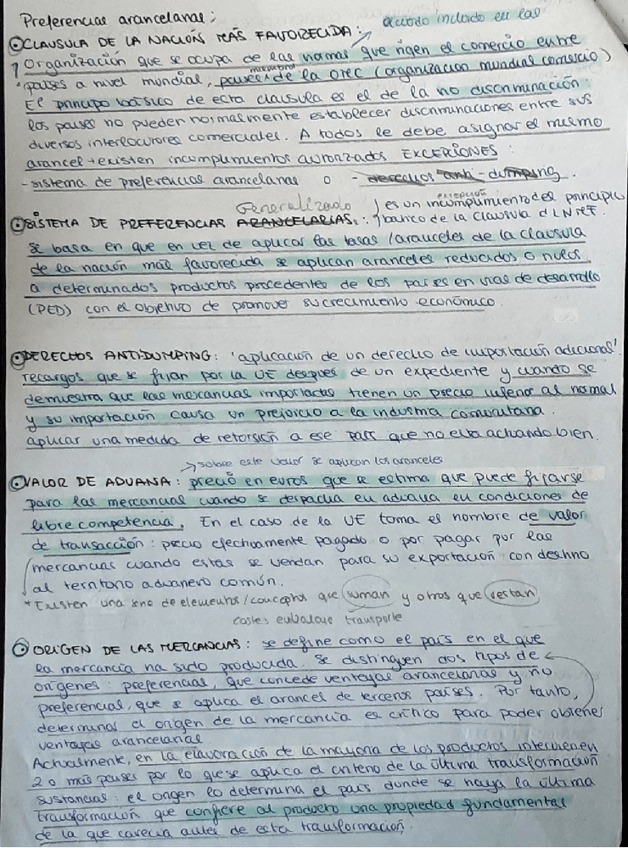 Preferencias arancelarias:
CLAUSULA DE LA NACIÓN MÁS FAVORECIDA: → acuerdo incluido en las
Organización que se ocupa de las normas que rigen el comercio entre
países a nivel mundial, países miembros de la OMC (organización mundial comercio)
El principo básico de esta clausula es el de la no discriminación.
los países no pueden normalmente establecer discriminaciones entre sus
diversos interlocutores comerciales. A todos se debe asignar el mismo
arancel → existen incumplimientos autorizados EXCEPCIONES:
- sistema de preferencias arancelarias o - derechos anti-dumping.
SISTEMA DE PREFERENCIAS ARANCELARIAS: Generalizado es un incumplimiento excepción del principio
básico de la clausula d LNMF.
Se basa en que en vez de aplicar las tasas/aranceles de la clausula
de la nación más favorecida se aplican aranceles reducidos o nulos
a determinados productos procedentes de los países en vías de desarrollo
(PED) con el objetivo de promover su crecimiento económico.
DERECHOS ANTIDUMPING: 'aplicación de un derecho de importación adicional'.
recargos que se fijan por la UE después de un expediente y cuando se
demuestra que las mercancías importadas tienen un precio inferior al normal
y su importación causa un prejuicio a la industria comunitaria.
aplicar una medida de retorsión a ese país que no está actuando bien.
→ sobre este valor se aplican los aranceles
VALOR DE ADUANA: precio en euros que se estima que puede fijarse
para las mercancías cuando se despacha en aduana en condiciones de
libre competencia. En el caso de la UE toma el nombre de valor
de transacción: precio efectivamente pagado o por pagar por las
mercancías cuando estas se vendan para su exportación con destino
al territorio aduanero común.
* Existen una serie de elementos/conceptos que suman y otros que restan
costes embalaje transporte
ORIGEN DE LAS MERCANCÍAS: se define como el país en el que
la mercancía ha sido producida. Se distinguen dos tipos de
orígenes: preferencial, que concede ventajas arancelarias y no
preferencial, que se aplica el arancel de terceros países. Por tanto,
determinar el origen de la mercancía es crítico para poder obtener
ventajas arancelarias
Actualmente, en la elavoración de la mayoría de los productos intervienen
2 o más países por lo que se aplica el criterio de la última transformación
sustancial: el origen lo determina el país donde se haya la última
transformación que confiere al producto una propiedad fundamental
de la que carecía antes de esta transformación.